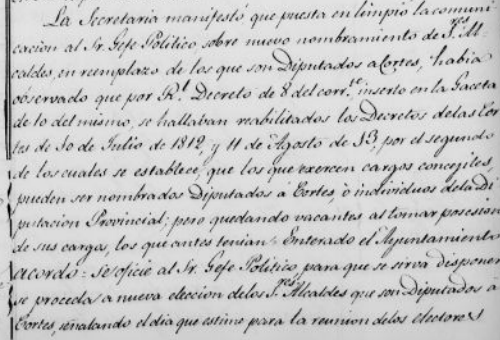 La Secretaria manifestó, que puesta en limpio la comuni-
cacion al Sr. Gefe Politico, sobre nuevo nombramiento de S.res Al-
caldes, en reemplazo de los que son Diputados a Cortes, habia
observado que por R.l Decreto de 8 del corr.te inserto en la Gaceta
de 10 del mismo, se hallaban reabilitados los Decretos de las Cor-
tes de 10 de Julio de 1812, y 11 de Agosto de 13, por el segundo
de los cuales se establece, que los que exercen cargos concejiles,
pueden ser nombrados Diputados á Cortes, ó individuos de la Di-
putacion Provincial; pero quedando vacantes al tomar posesion
de sus cargos, los que antes tenian. Enterado el Ayuntamiento
acordó = Se oficie al Sr. Gefe Politico, para que se sirva disponer
se proceda a nueva eleccion de los S.res Alcaldes que son Diputados a
Cortes, señalando el dia que estime para la reunion de los electores